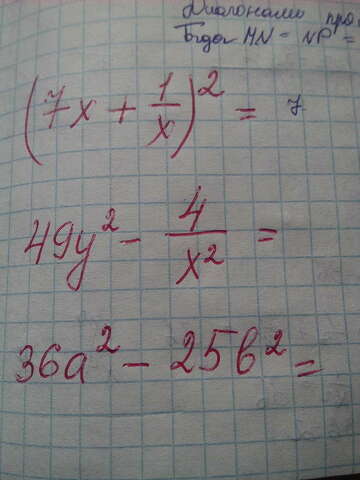 Диагонали
MN = NP =
(7x + 1/x)² = 7
49y² - 4/x² =
36a² - 25b² =